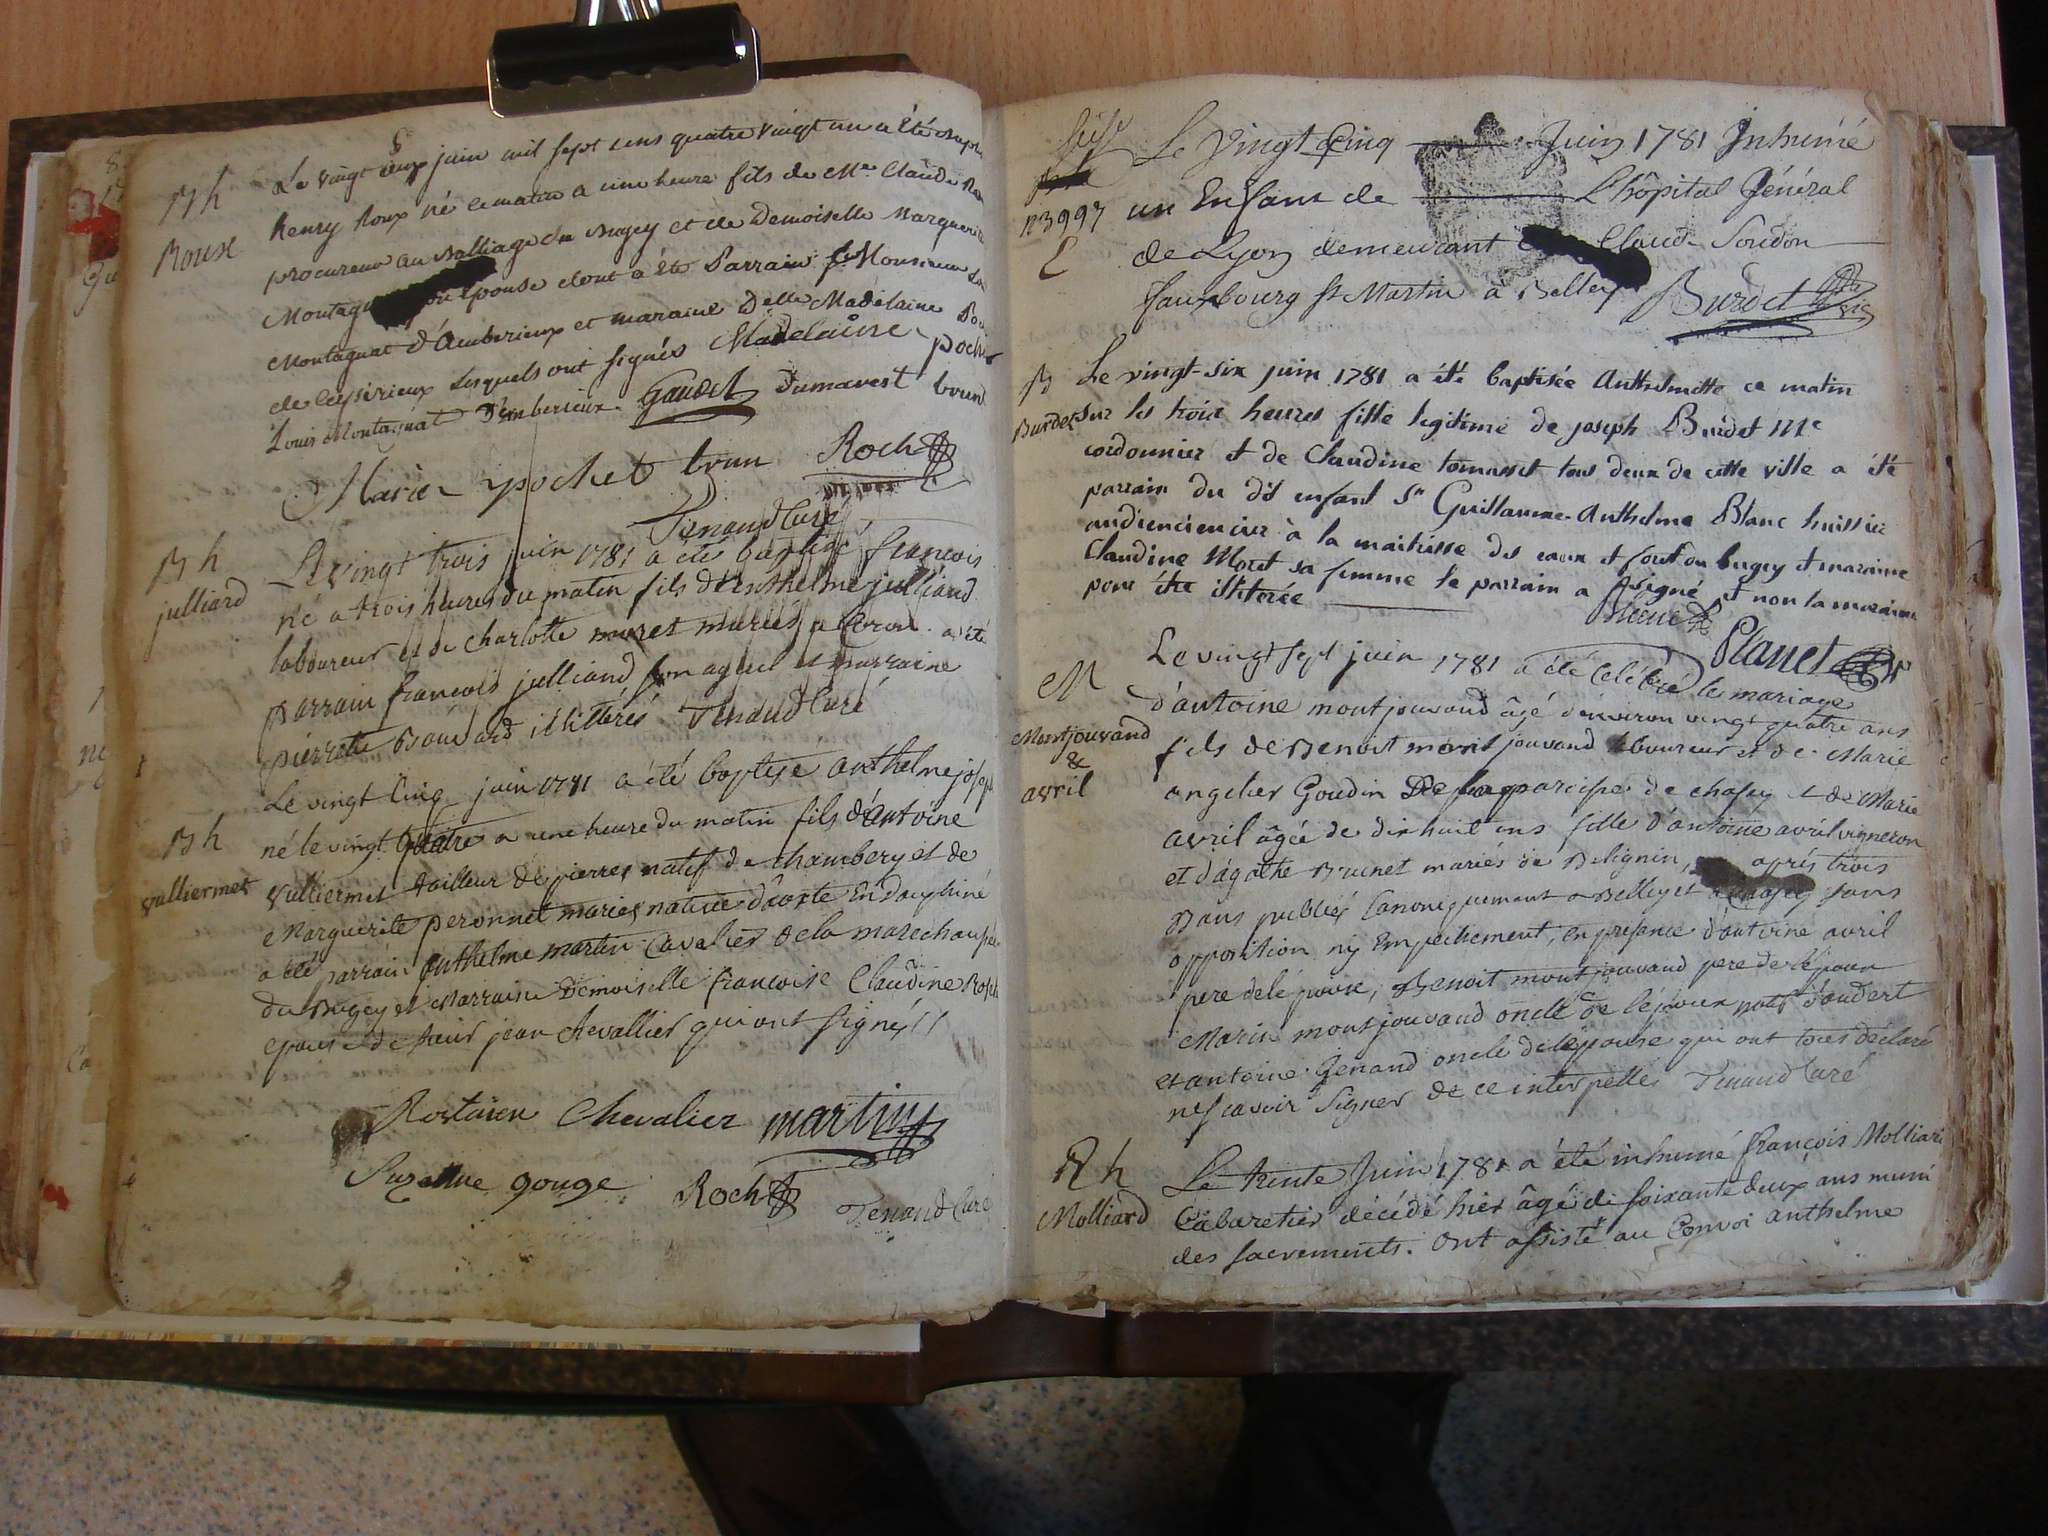 B h
Roux
Le vingt deux juin mil sept cens quatre vingt un a été
henry Roux né ce matin a une heure fils de Me Claude
procureur au Balliage du Bugey et de Demoiselle Marguerite
son épouse dont a été Parrain Monsieur
Montagnat d'Amberieux et maraine Delle Madelaine
de Ceysirieux Lesquels ont signés Madelaine pochet
Louis Montagnat D'amberieux Gaudet Dumarest brun
Marie pochet brun Roch
Tenand Curé
B h
julliard
Le vingt trois juin 1781 a été baptisé françois
né a trois heures du matin fils d'Enthelme julliand
laboureur et de charlotte mariés a été
parrain françois julliand son ayeul et marraine
pierrette Bouvard illitérés Tenand Curé
B h
vulliermet
Le vingt Cinq juin 1781 a été baptisé anthelme joseph
né le vingt quatre a une heure du matin fils d'antoine
Vulliermet tailleur de pierres natif de chambery et de
Marguerite peronnet mariés native d'aoste En dauphiné
a été parrain anthelme martin Cavalier de la marechaussée
du Bugey et Marraine Demoiselle francoise Claudine
epouse de sieur jean chevallier qui ont signés
Rostaien Chevalier martin
Suzanne gouge Roch Tenand Curé
n 3997
Le Vingt Cinq Juin 1781 Inhumé
un Enfant de L'hôpital Général
de Lyon demeurant Claude Soudon
fauxbourg St Martin à Belley Burdet
B
Burdet
Le vingt-six juin 1781 a été baptisée Anthelmette ce matin
sur les trois heures fille legitime de joseph Burdet Me
cordonnier et de Claudine tomasset tous deux de cette ville a été
parrain du dit enfant Sr Guillaume Anthelme Blanc huissier
audiencier à la maitrisse des eaux et foret du bugey et maraine
Claudine Moret sa femme le parrain a signé et non la maraine
pour être illiterée
Blanc
Planet
M
Montjouvand
&
avril
Le vingt sept juin 1781 a été Célébré le mariage
d'antoine montjouvand âgé d'environ vingt quatre ans
fils de Benoit mont jouvand laboureur et de Marie
angelier Goudin De la paroisse de chasey et de Marie
avril âgée de dix huit ans fille d'antoine avril vigneron
et d'agathe Brunet mariés de Bilignin, après trois
Bans publiés Canoniquement a Belley et a chasey sans
opposition ny Empechement, en presance d'antoine avril
pere de l'épouse, Benoit montjouvand pere de l'époux
Marin montjouvand oncle de l'époux natif d'andert
et antoine Genand oncle de l'épouse qui ont tous déclaré
ne scavoir signer de ce interpellés Tenand Curé
R h
Molliard
Le trente Juin 1781 a été inhumé françois Molliard
Cabaretier décédé hier âgé de soixante deux ans muni
des sacrements. Ont assisté au Convoi anthelme